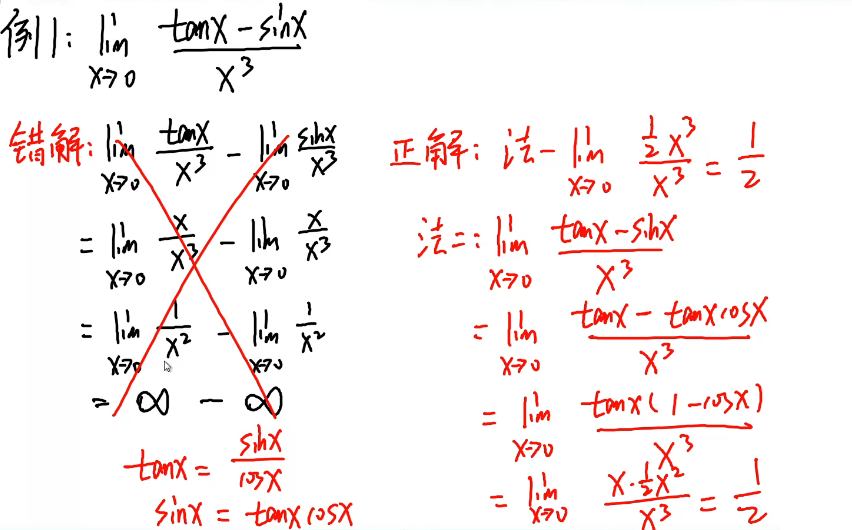 例1: lim x→0 (tanx - sinx)/x³
错解: lim x→0 tanx/x³ - lim x→0 sinx/x³
= lim x→0 x/x³ - lim x→0 x/x³
= lim x→0 1/x² - lim x→0 1/x²
= ∞ - ∞
tanx = sinx/cosx
sinx = tanx cosx
正解: 法一 lim x→0 (1/2 x³)/x³ = 1/2
法二: lim x→0 (tanx - sinx)/x³
= lim x→0 (tanx - tanx cosx)/x³
= lim x→0 tanx(1-cosx)/x³
= lim x→0 (x·1/2x²)/x³ = 1/2